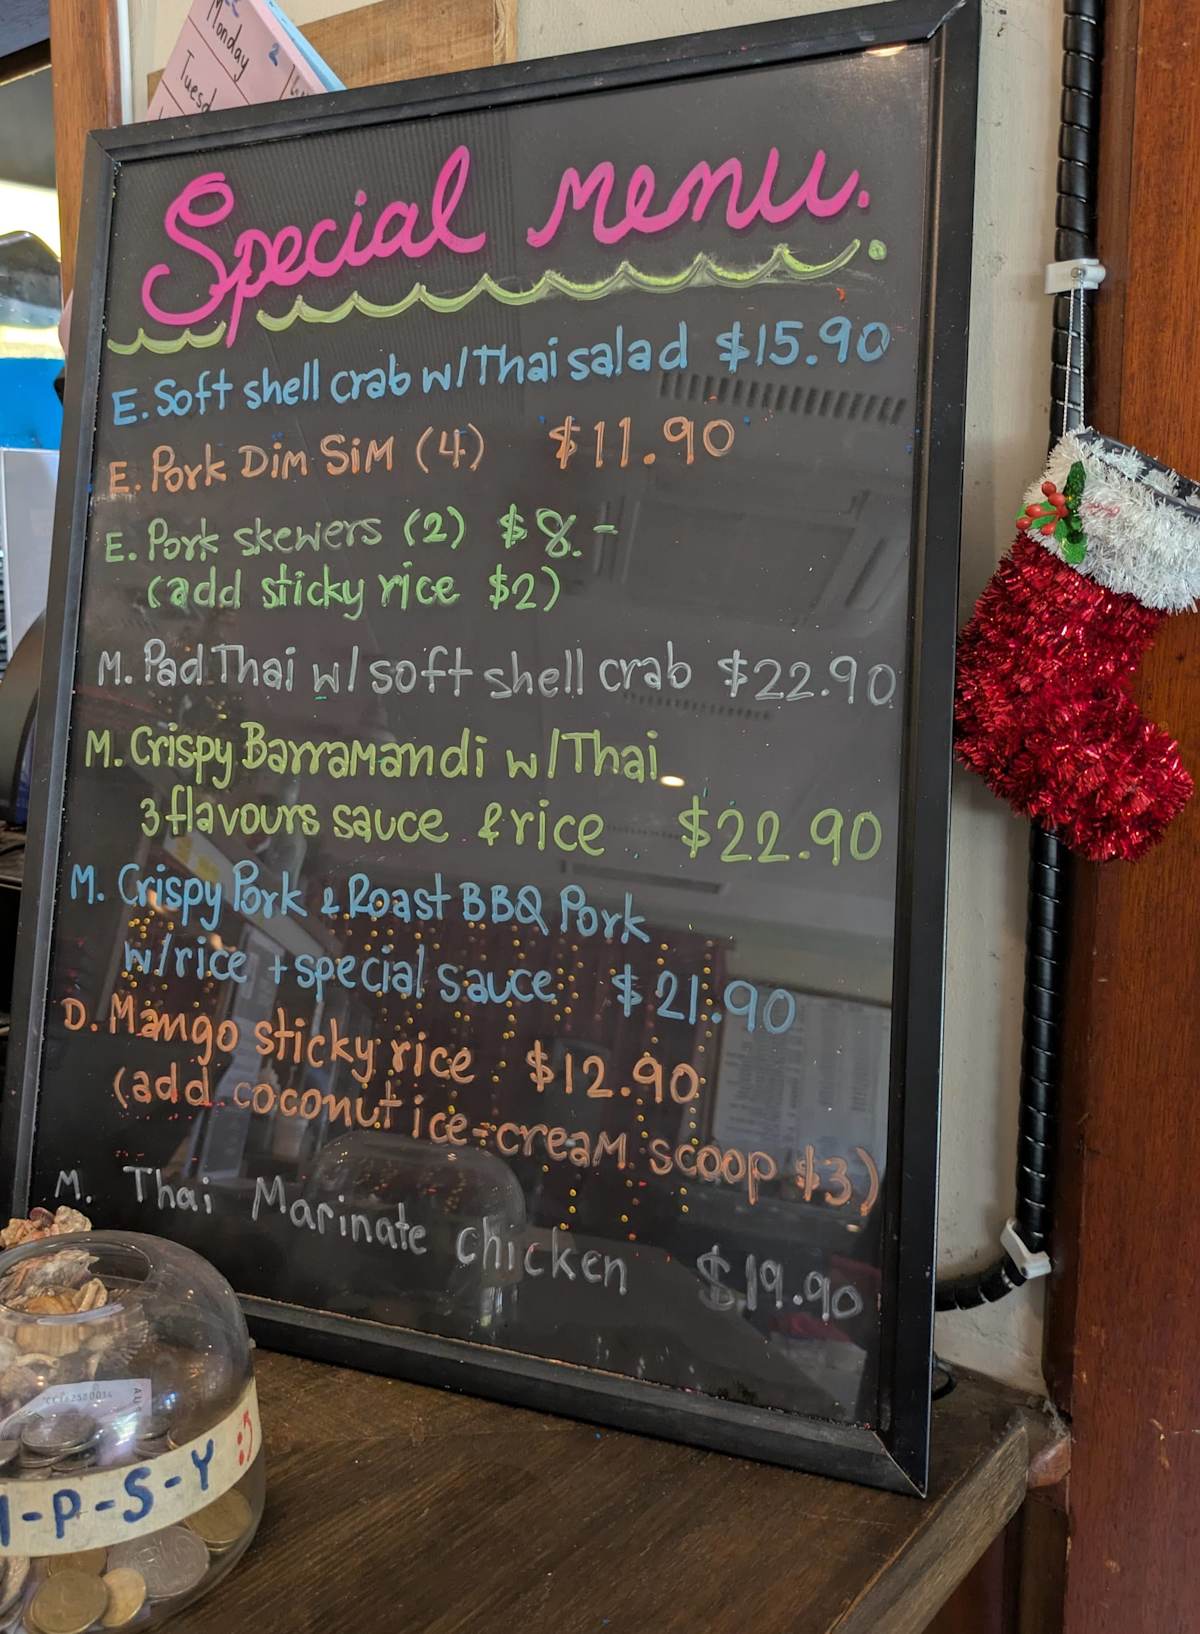 Monday
2
Tuesd
Special menu.
E. Soft shell crab w/Thai salad $15.90
E. Pork Dim Sim (4) $11.90
E. Pork skewers (2) $8.-
(add sticky rice $2)
M. Pad Thai w/ soft shell crab $22.90
M. Crispy Barramandi w/Thai
3 flavours sauce & rice $22.90
M. Crispy Pork & Roast BBQ Pork
w/rice + special sauce $21.90
D. Mango sticky rice $12.90
(add coconut ice-cream scoop $3)
M. Thai Marinate chicken $19.90
I-P-S-Y :)